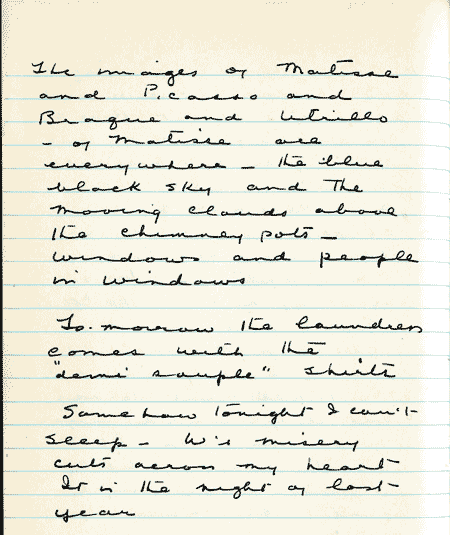 The images of Matisse
and Picasso and
Braque and Utrillo
- of Matisse are
everywhere - the blue
black sky and The
moving clouds above
the chimney pots -
windows and people
in windows
To-morrow the laundress
comes with the
"demi souple" shirts
Somehow tonight I can't
sleep - W's misery
cuts across my heart
It is the night of last
year